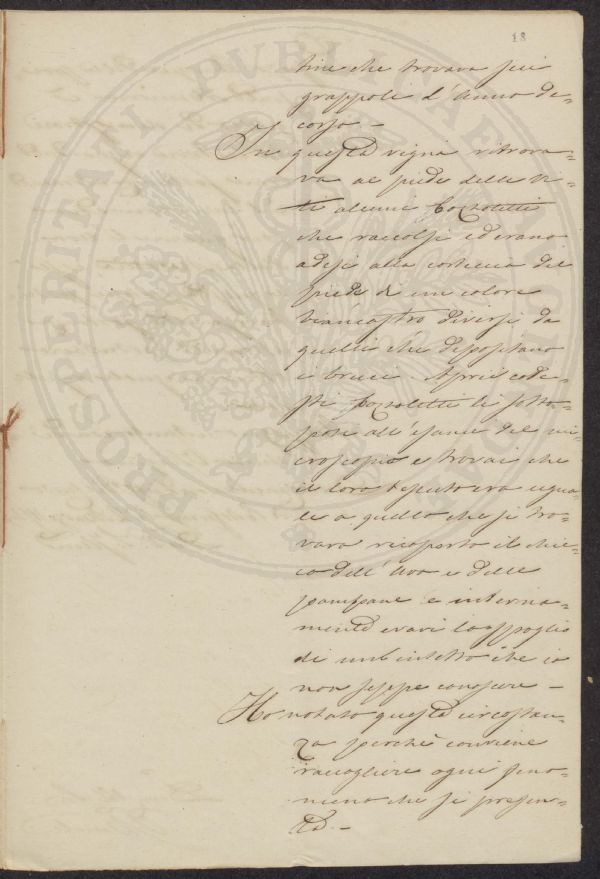 18
tine che trovava sui
grappoli l'Anno de=
corso -
In questa vigna ritrova=
va al piede delle vi=
ti alcuni bozzoletti
che raccolsi ed erano
adesi alla corteccia del
piede di un colore
biancastro diversi da
quelli che depositano
i bruci. Aprii code=
sti bozzoletti li sotto=
posi all'esame del mi=
croscopio e trovai che
il loro tessuto era egua=
le a quello che si tro=
vava ricoperto il chic=
co dell'Uva e delle
pampane e interna=
mente eravi lo spoglio
di un insetto che io
non seppe conoscere -
Ho notato questa circostan=
za perchè conviene
raccogliere ogni feno=
meno che si presen=
ta -
PROSPERITATI PUBLICAE AUGENDAE